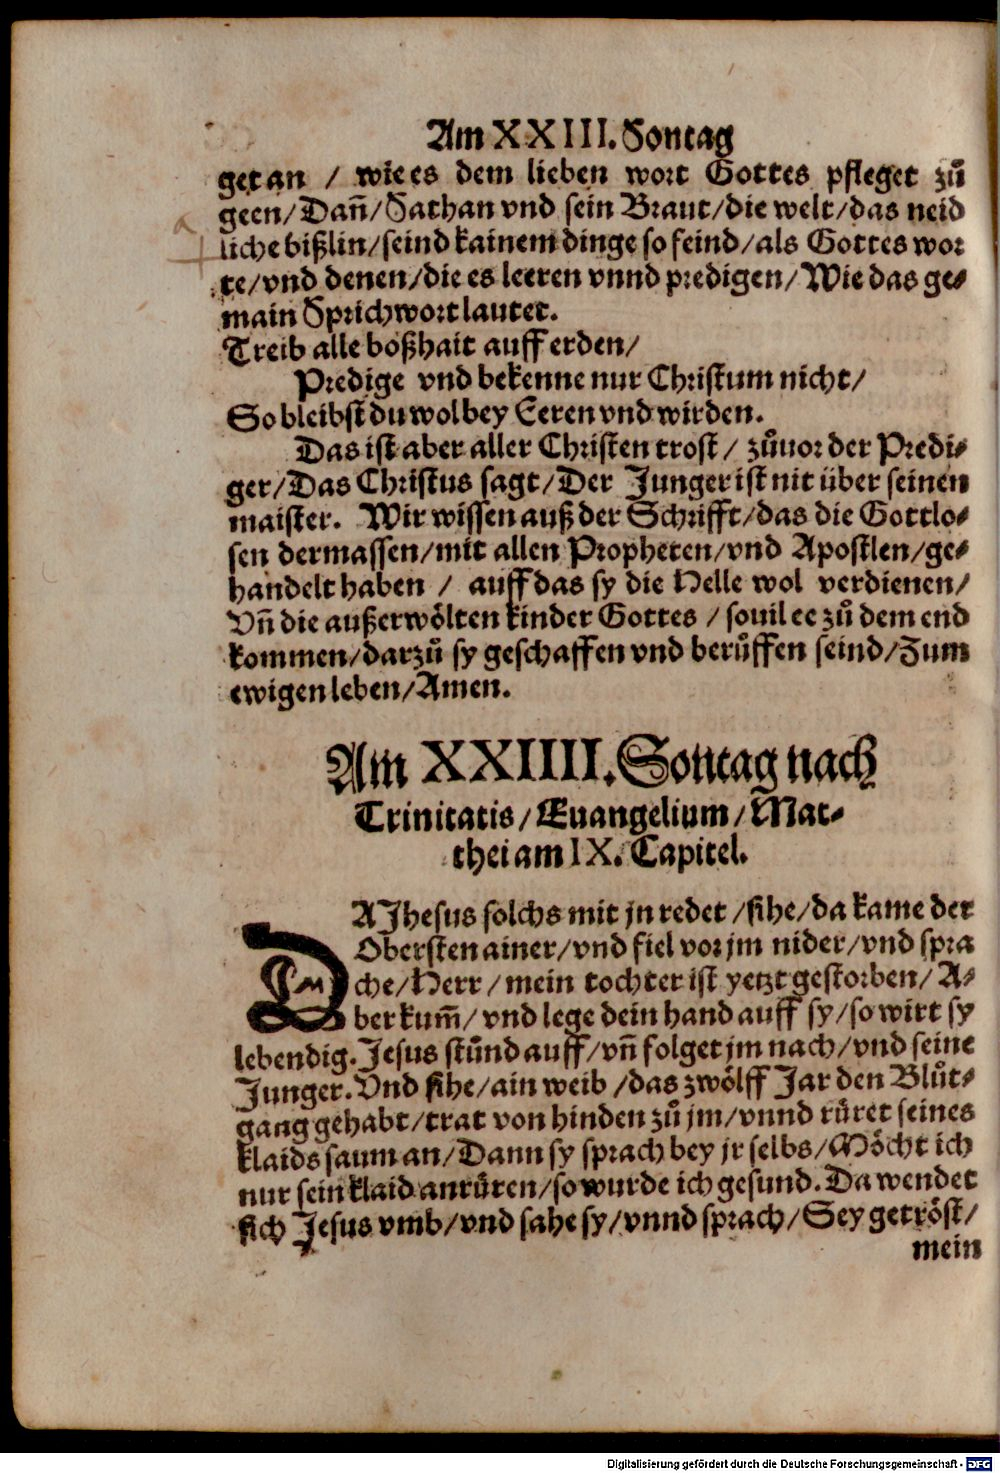 Am XXIII. Sontag
get an / wie es dem lieben wort Gottes pfleget zuͦ
geen/Dañ/Sathan vnd sein Braut/die welt/das neid
liche bißlin/seind kainem dinge so feind/als Gottes wor
te/vnd denen/die es leeren vnnd predigen/Wie das ge⸗
main Sprichwort lautet.
Treib alle boßhait auff erden/
Predige vnd bekenne nur Christum nicht/
So bleibst du wol bey Eeren vnd wirden.
Das ist aber aller Christen trost/ zuͦuor der Predi⸗
ger/Das Christus sagt/Der Junger ist nit über seinen
maister. Wir wissen auß der Schrifft/das die Gottlo⸗
sen dermassen/mit allen Propheten/vnd Apostlen/ge⸗
handelt haben / auff das sy die Helle wol verdienen/
Vñ die außerwoͤlten kinder Gottes / souil ee zuͦ dem end
kommen/darzuͦ sy geschaffen vnd beruͦffen seind/Zum
ewigen leben/Amen.
Am XXIIII. Sontag nach
Trinitatis/Euangelium/Mat⸗
thei am IX. Capitel.
DA Jhesus solchs mit jn redet/sihe/da kame der
Obersten ainer/vnd fiel vor jm nider/vnd spra
che/Herr/mein tochter ist yetzt gestorben/A⸗
ber kum̃/ vnd lege dein hand auff sy/so wirt sy
lebendig. Jesus stuͦnd auff/vñ folget jm nach/vnd seine
Junger. Vnd sihe/ain weib/das zwoͤlff Jar den Bluͦt⸗
gang gehabt/trat von hinden zuͦ jm/vnnd ruͤret seines
klaids saum an/Dann sy sprach bey jr selbs/Moͤcht ich
nur sein klaid anruͤren/so wurde ich gesund. Da wendet
sich Jesus vmb/vnd sahe sy/vnnd sprach/Sey getroͤst/
mein
Digitalisierung gefördert durch die Deutsche Forschungsgemeinschaft - DFG